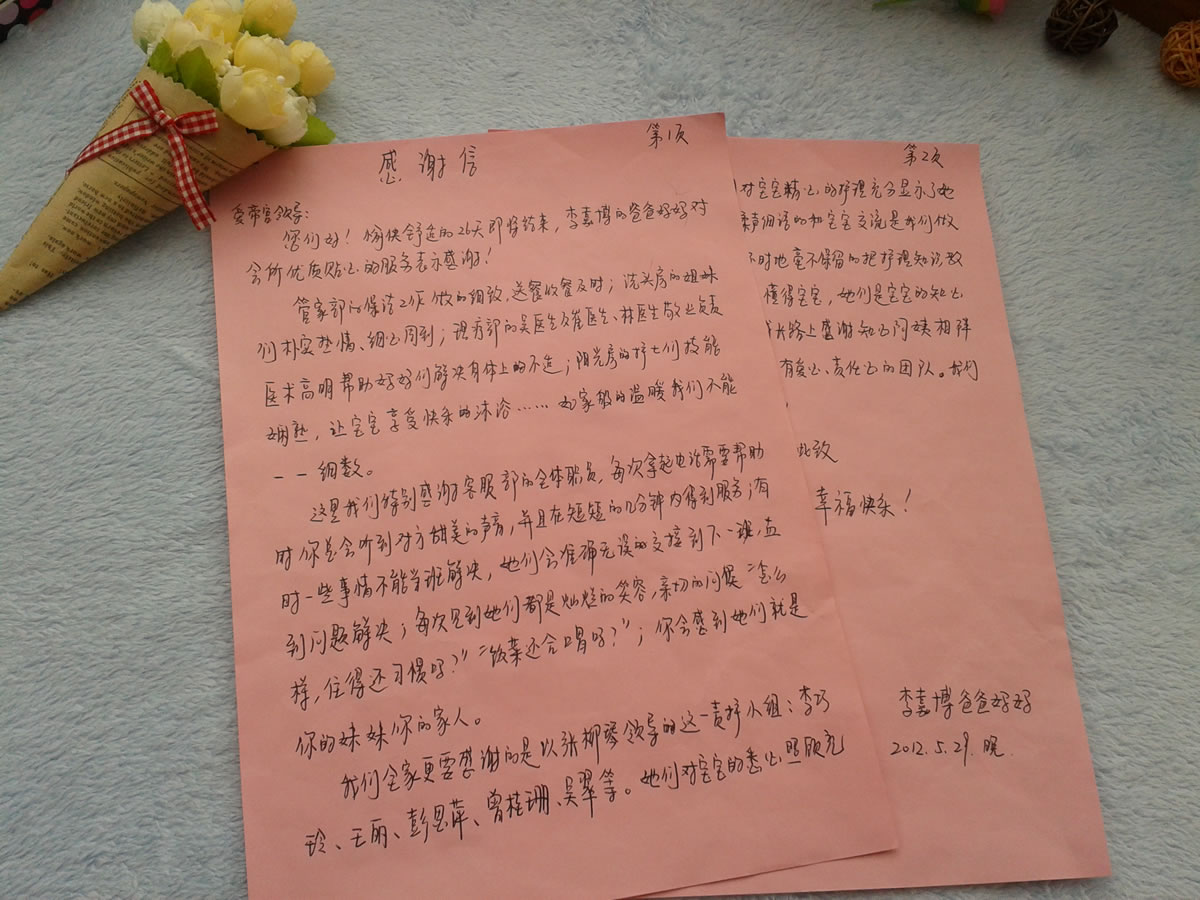 第1页
感谢信
爱帝宫领导:
您们好! 愉快舒适的26天即将结束, 李嘉博的爸爸妈妈对
会所优质贴心的服务表示感谢!
管家部的保洁工作做的细致, 送餐收餐及时; 洗头房的姐妹
们朴实热情、细心周到; 理疗部的吴医生及崔医生、林医生敬业负责
医术高明帮助妈妈们解决身体上的不适; 阳光房的护士们技能
娴熟, 让宝宝享受快乐的沐浴…… 如家般的温暖我们不能
一一细数。
这里我们特别感谢客服部的全体职员, 每次拿起电话需要帮助
时你总会听到对方甜美的声音, 并且在短短的几分钟内得到服务; 有
时一些事情不能当班解决, 她们会准确无误的交接到下一班, 直
到问题解决; 每次见到她们都是灿烂的笑容, 亲切的问候“怎么
样, 住得还习惯吗?”“饭菜还合胃吗?”; 你会感到她们就是
你的妹妹你的家人。
我们全家更要感谢的是以张柳琴领导的这一责护小组: 李巧
玲、王丽、彭思萍、曾桂珊、吴翠等。她们对宝宝的悉心照顾充
第2页
对宝宝精心的护理充分显示了她
柔声细语的和宝宝交流是我们做
不时地毫不保留的把护理知识教
懂得宝宝, 她们是宝宝的知心
长路上感谢知心阿姨相伴
有爱心、责任心的团队。我们
此致
幸福快乐!
李嘉博爸爸妈妈
2012.5.29.晚.